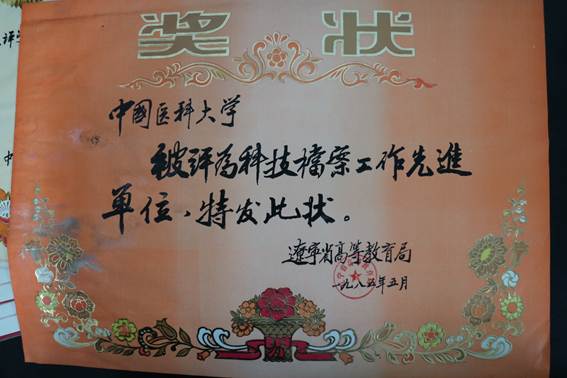 奖状
中國医科大学
被评为科技檔案工作先進
单位、特发此状。
遼宁省高等教育局
一九八五年五月